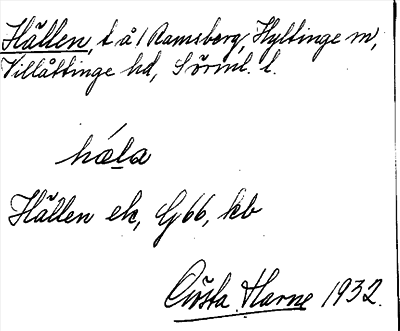 Hällen, t å 1 Ramsberg, Hyltinge sn,
Villåttinge hd, Sörml. l.
hä́la
Hällen ek, G 66, kb
Gösta Harne 1932.